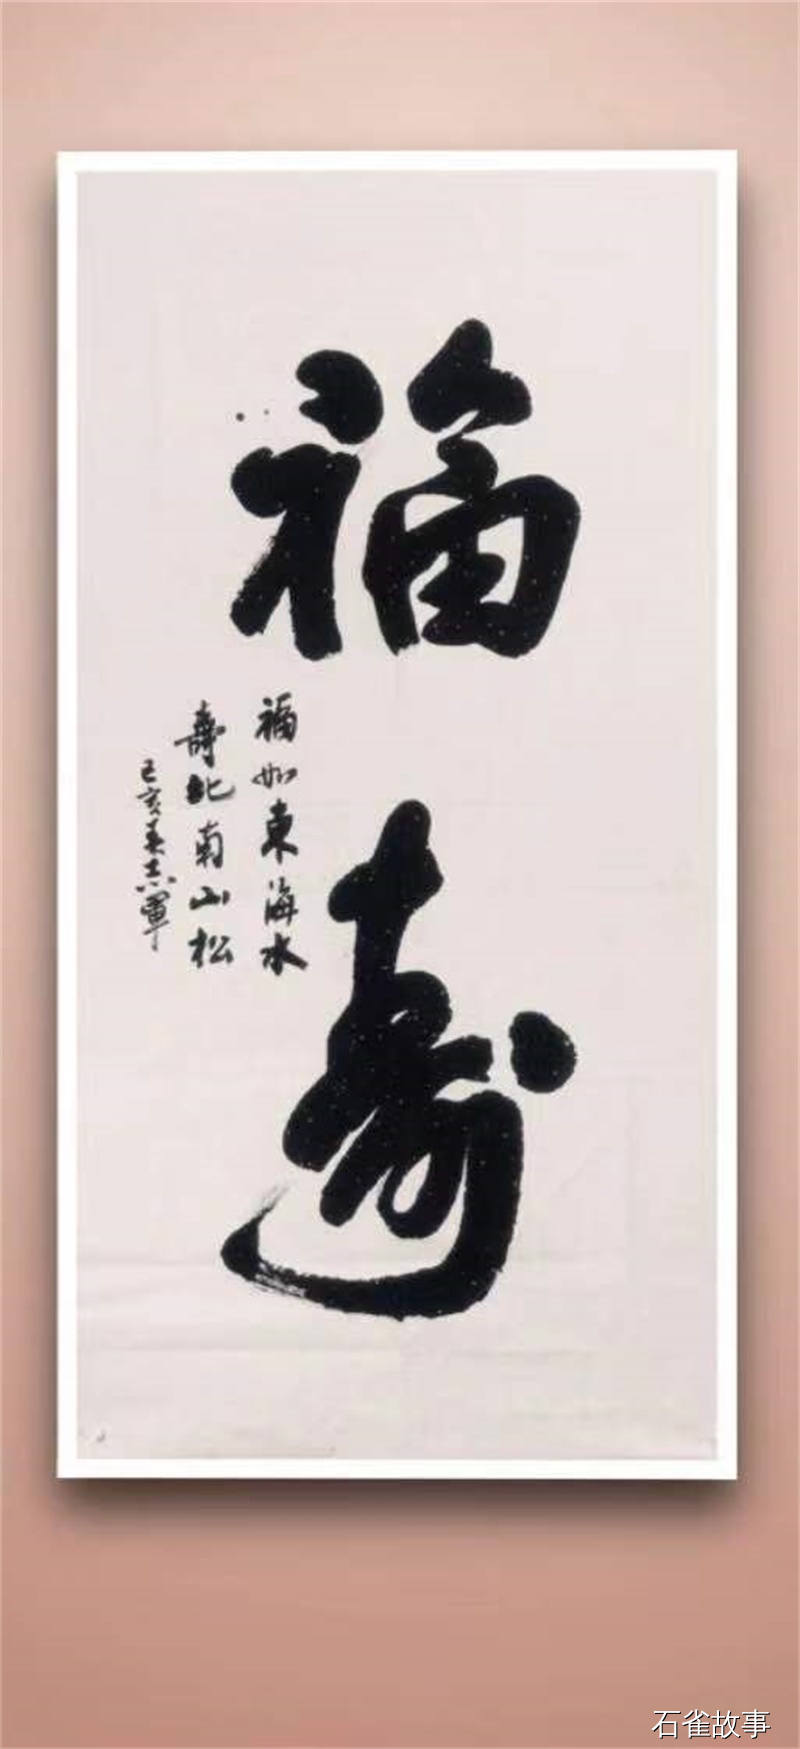 福
壽
福如東海水
壽比南山松
己亥春志軍
石雀故事